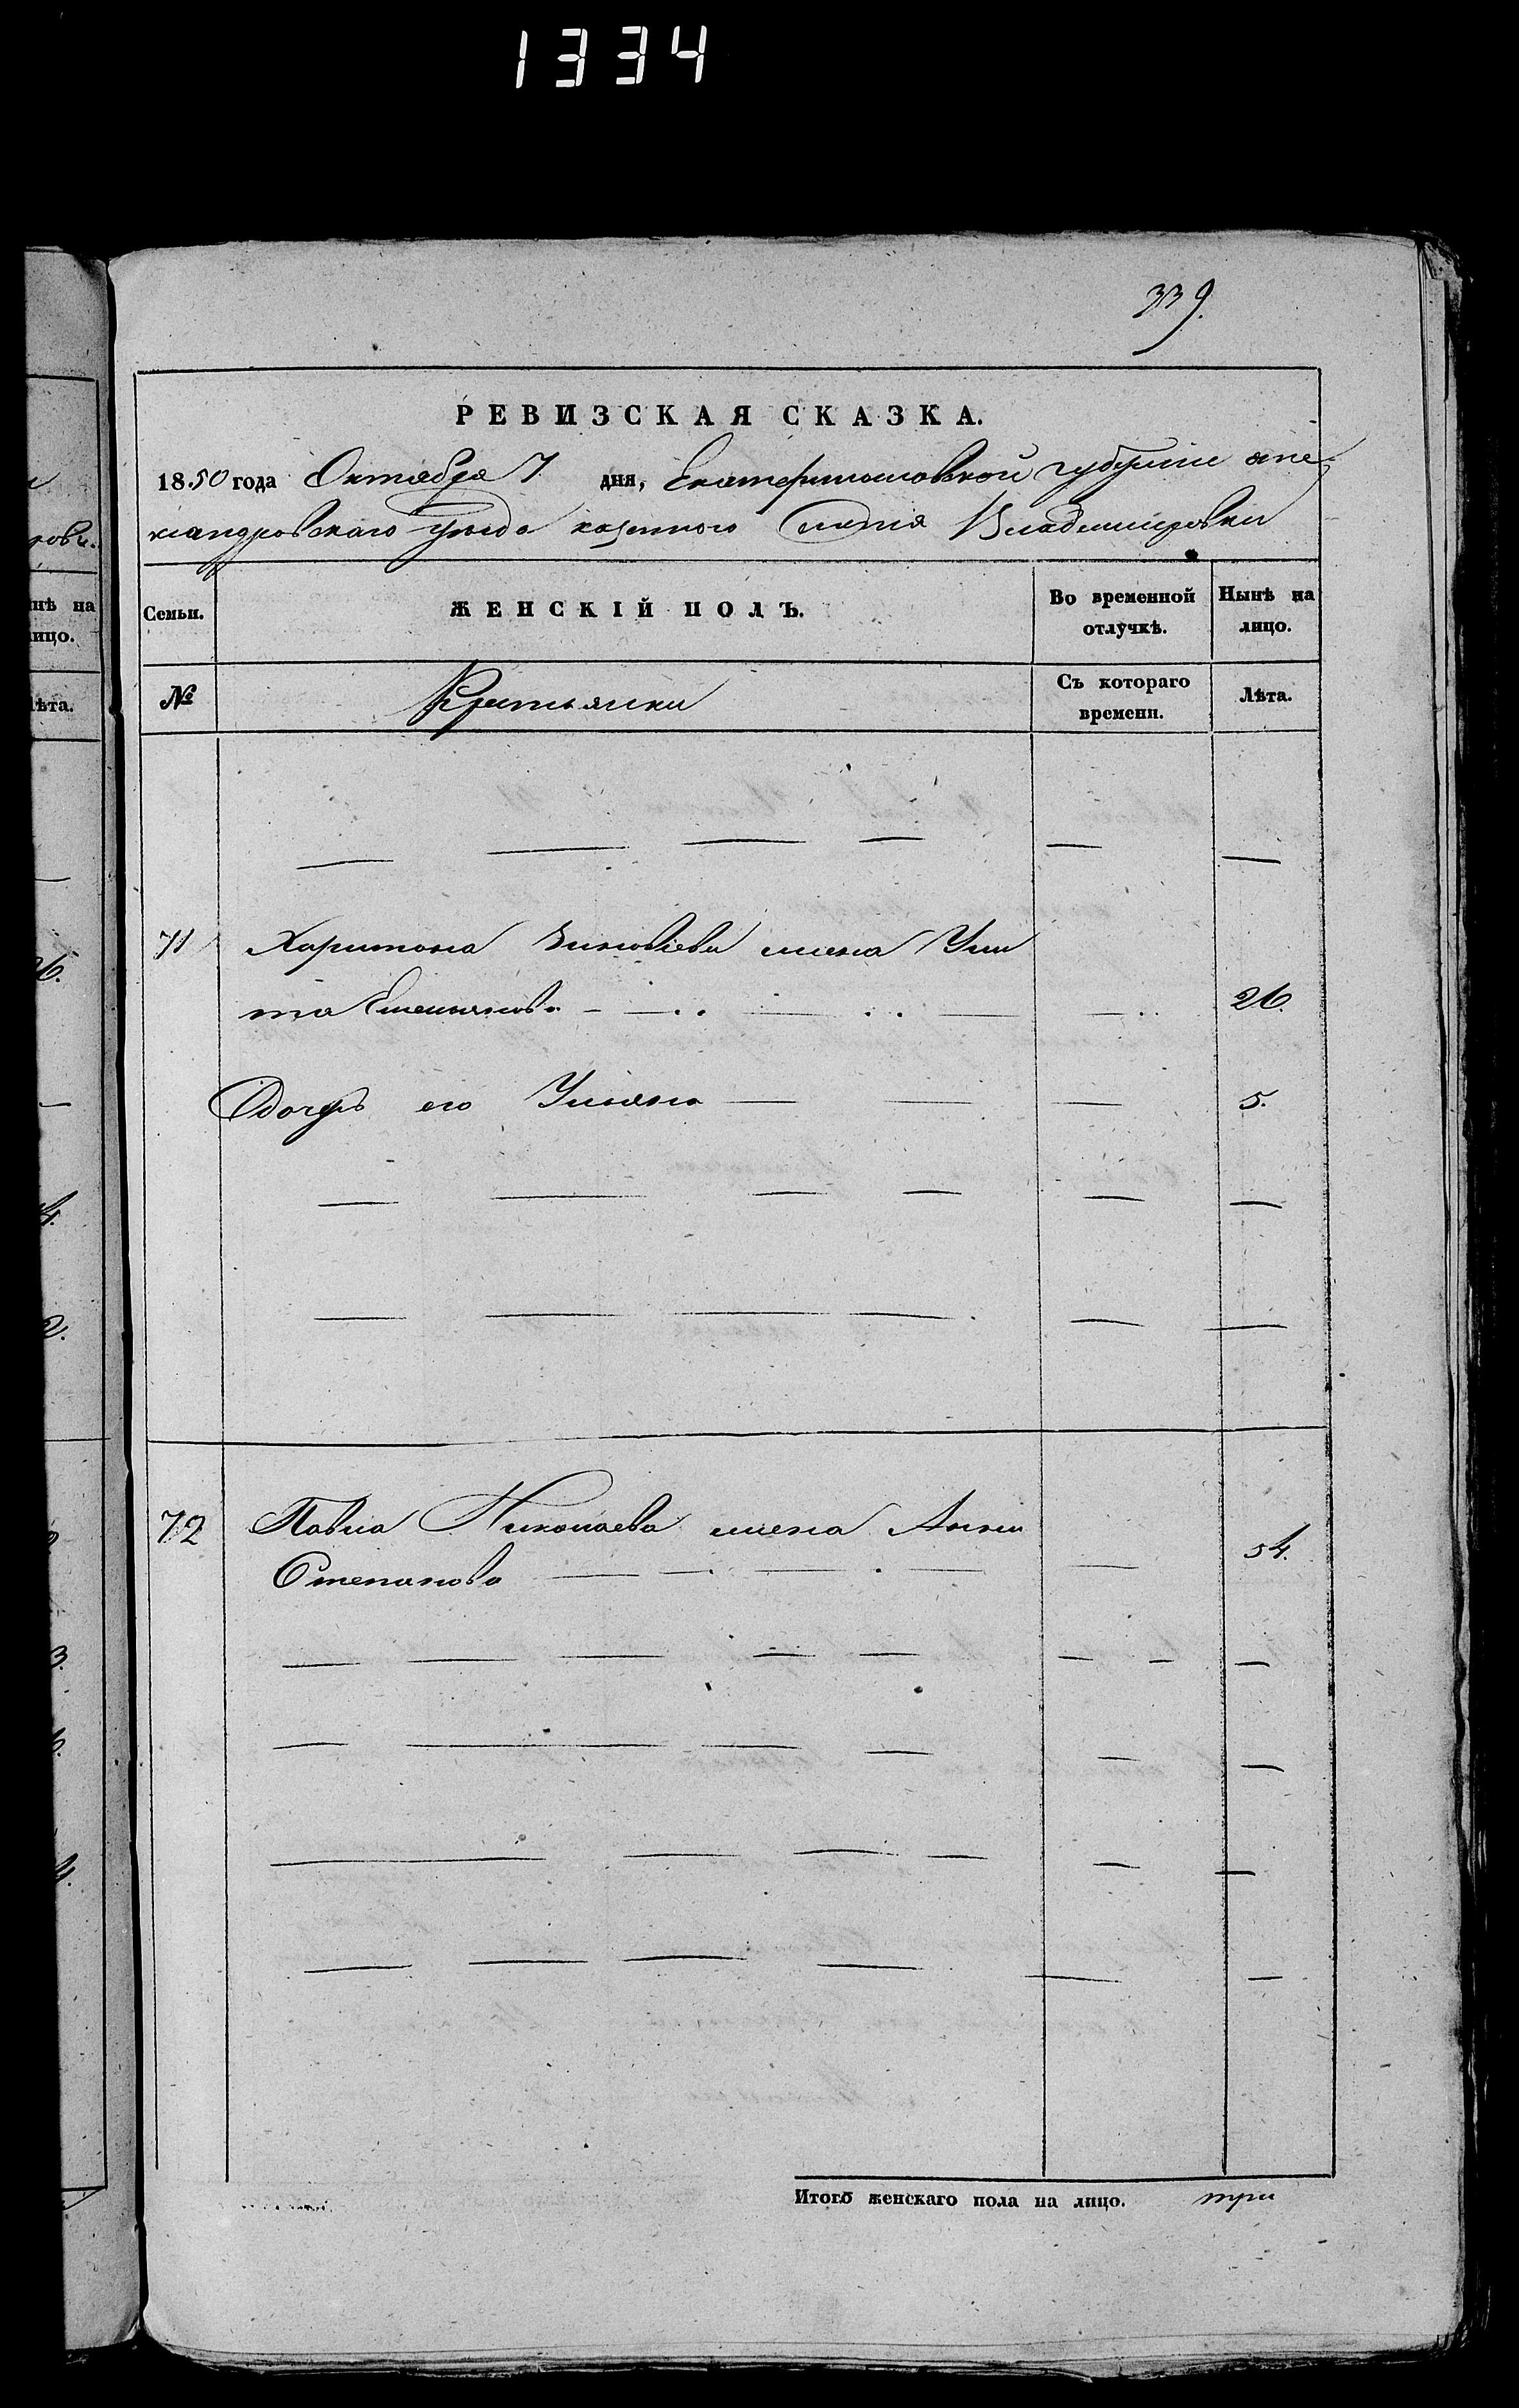 1334
339.
РЕВИЗСКАЯ СКАЗКА.
1850 года Октября 7 дня, Екатеринославской губернии Алек-
сандровскаго уезда казенного селения Владимировки
Семьи. ЖЕНСКІЙ ПОЛЪ. Во временной отлучкѣ. Нынѣ на лицо.
№ Крестьянки Съ котораго времени. Лѣта.
71 Харитона Зиновіева жена Ули
та Емельянова 26.
Дочерь его Ульяна 5.
72 Павла Николаева жена Анна
Степанова 54.
Итого женскаго пола на лицо. три
нѣ на
лицо.
Лѣта.